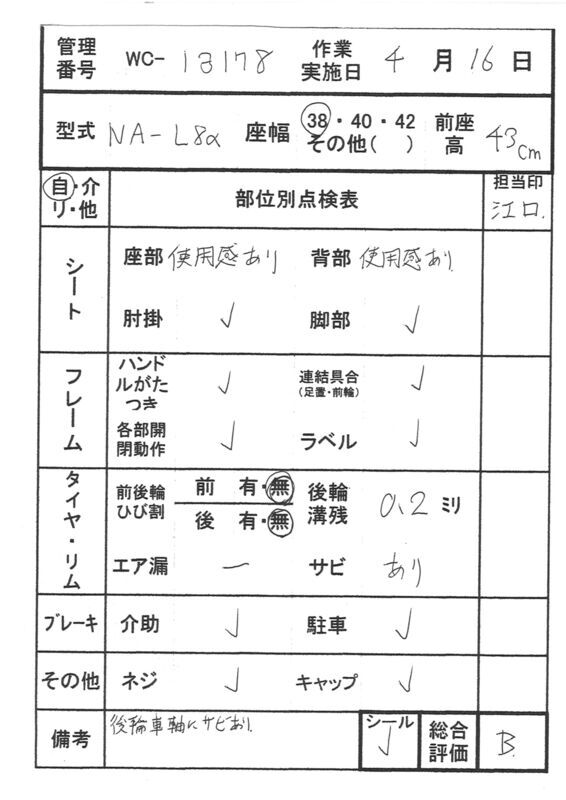 管理番号 WC- 13178 作業実施日 4月16日
型式 NA-L8α 座幅 38・40・42 その他( ) 前座高 43cm
自・介 リ・他 部位別点検表 担当印 江口.
シート
座部 使用感あり 背部 使用感あり
肘掛 ✓ 脚部 ✓
フレーム
ハンドルがたつき ✓ 連結具合(足置・前輪) ✓
各部開閉動作 ✓ ラベル ✓
タイヤ・リム
前後輪ひび割 前 有・無 後 有・無 後輪溝残 0.2 ミリ
エア漏 ー サビ あり
ブレーキ 介助 ✓ 駐車 ✓
その他 ネジ ✓ キャップ ✓
備考 後輪車軸にサビあり. シール ✓ 総合評価 B.